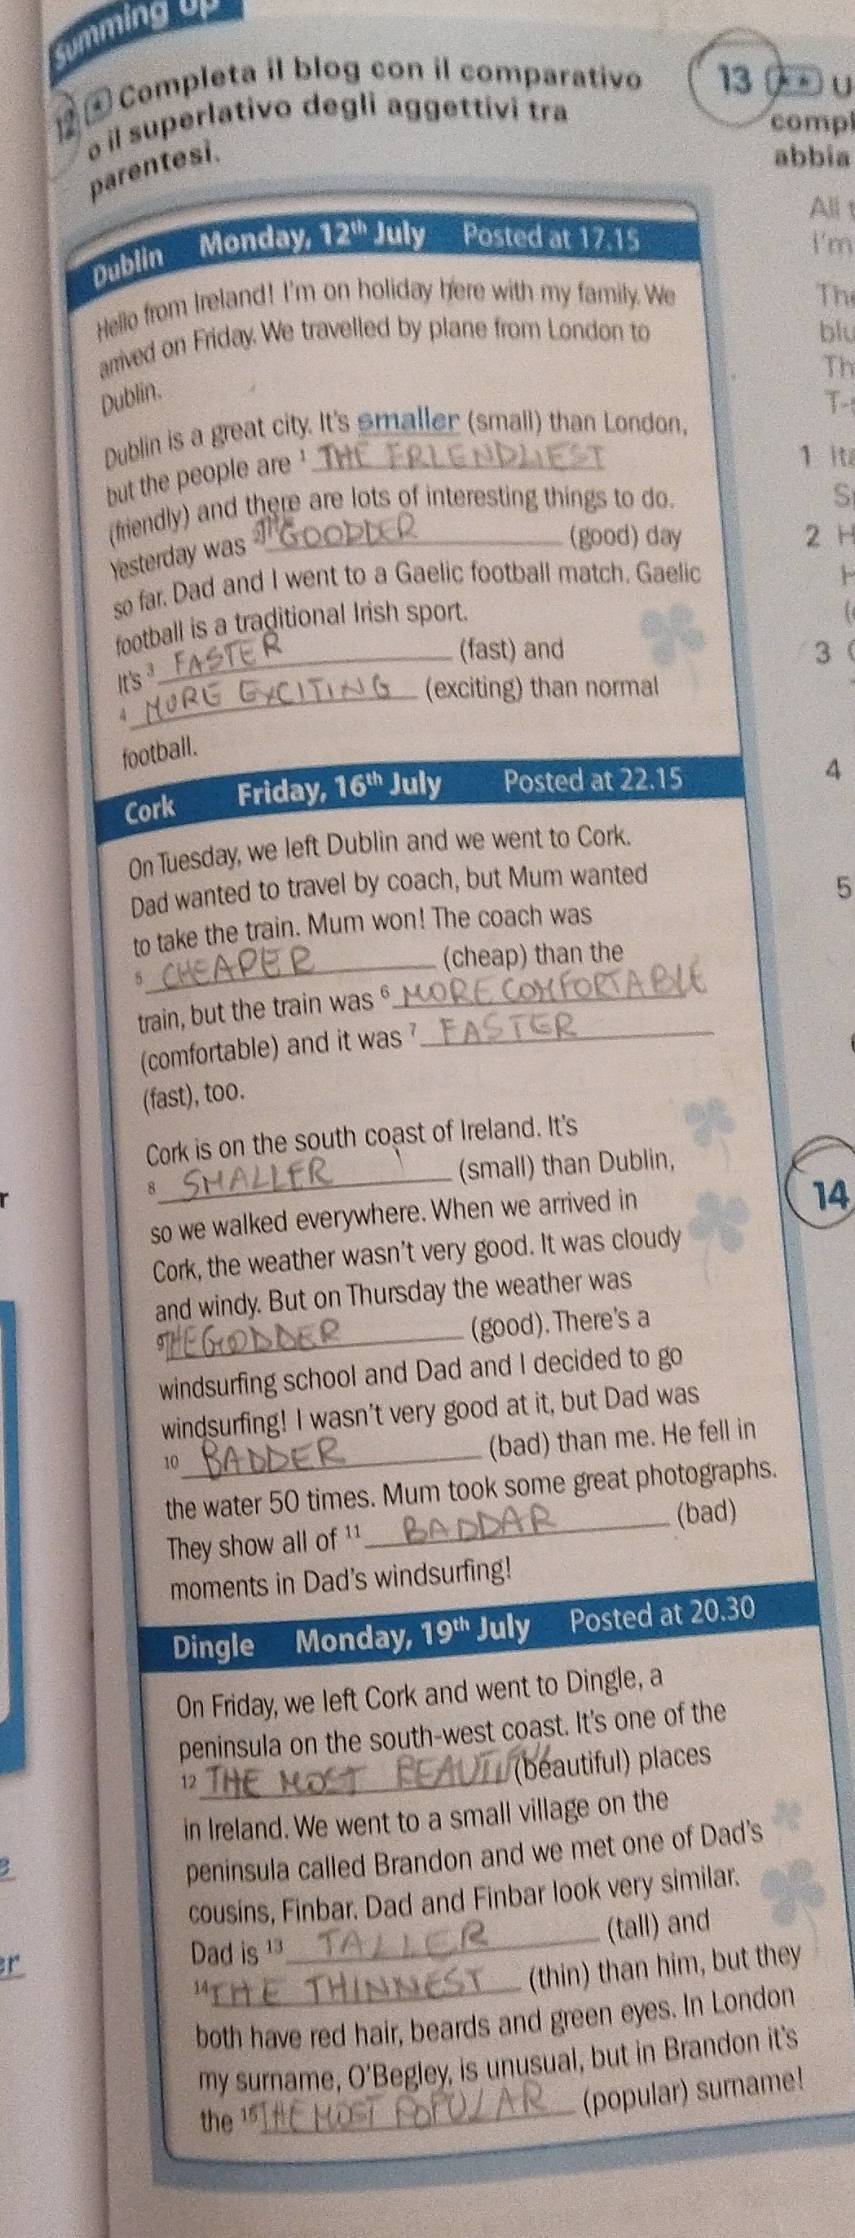 Summing Up
12 * Completa il blog con il comparativo
o il superlativo degli aggettivi tra
parentesi.
Dublin Monday, 12th July Posted at 17.15
Hello from Ireland! I'm on holiday here with my family. We
arrived on Friday. We travelled by plane from London to
Dublin.
Dublin is a great city. It's smaller (small) than London,
but the people are 1 THE FRIENDLIEST
(friendly) and there are lots of interesting things to do.
Yesterday was 2 GOODDER (good) day
so far. Dad and I went to a Gaelic football match. Gaelic
football is a traditional Irish sport.
It's 3 FASTER (fast) and
4 MORE EXCITING (exciting) than normal
football.
Cork Friday, 16th July Posted at 22.15
On Tuesday, we left Dublin and we went to Cork.
Dad wanted to travel by coach, but Mum wanted
to take the train. Mum won! The coach was
5 CHEAPER (cheap) than the
train, but the train was 6 MORE COMFORTABLE
(comfortable) and it was 7 FASTER
(fast), too.
Cork is on the south coast of Ireland. It's
8 SMALLER (small) than Dublin,
so we walked everywhere. When we arrived in
Cork, the weather wasn't very good. It was cloudy
and windy. But on Thursday the weather was
9 THE GODDER (good). There's a
windsurfing school and Dad and I decided to go
windsurfing! I wasn't very good at it, but Dad was
10 BADDER (bad) than me. He fell in
the water 50 times. Mum took some great photographs.
They show all of 11 BADDAR (bad)
moments in Dad's windsurfing!
Dingle Monday, 19th July Posted at 20.30
On Friday, we left Cork and went to Dingle, a
peninsula on the south-west coast. It's one of the
12 THE MOST BEAUTIFUL (beautiful) places
in Ireland. We went to a small village on the
peninsula called Brandon and we met one of Dad's
cousins, Finbar. Dad and Finbar look very similar.
Dad is 13 TALLER (tall) and
14 THE THINNEST (thin) than him, but they
both have red hair, beards and green eyes. In London
my surname, O'Begley, is unusual, but in Brandon it's
the 15 THE MOST POPULAR (popular) surname!
13 ** U
compl
abbia
All
I'm
The
blu
Th
T-
1 ita
S
2 H
3
4
5
14
er